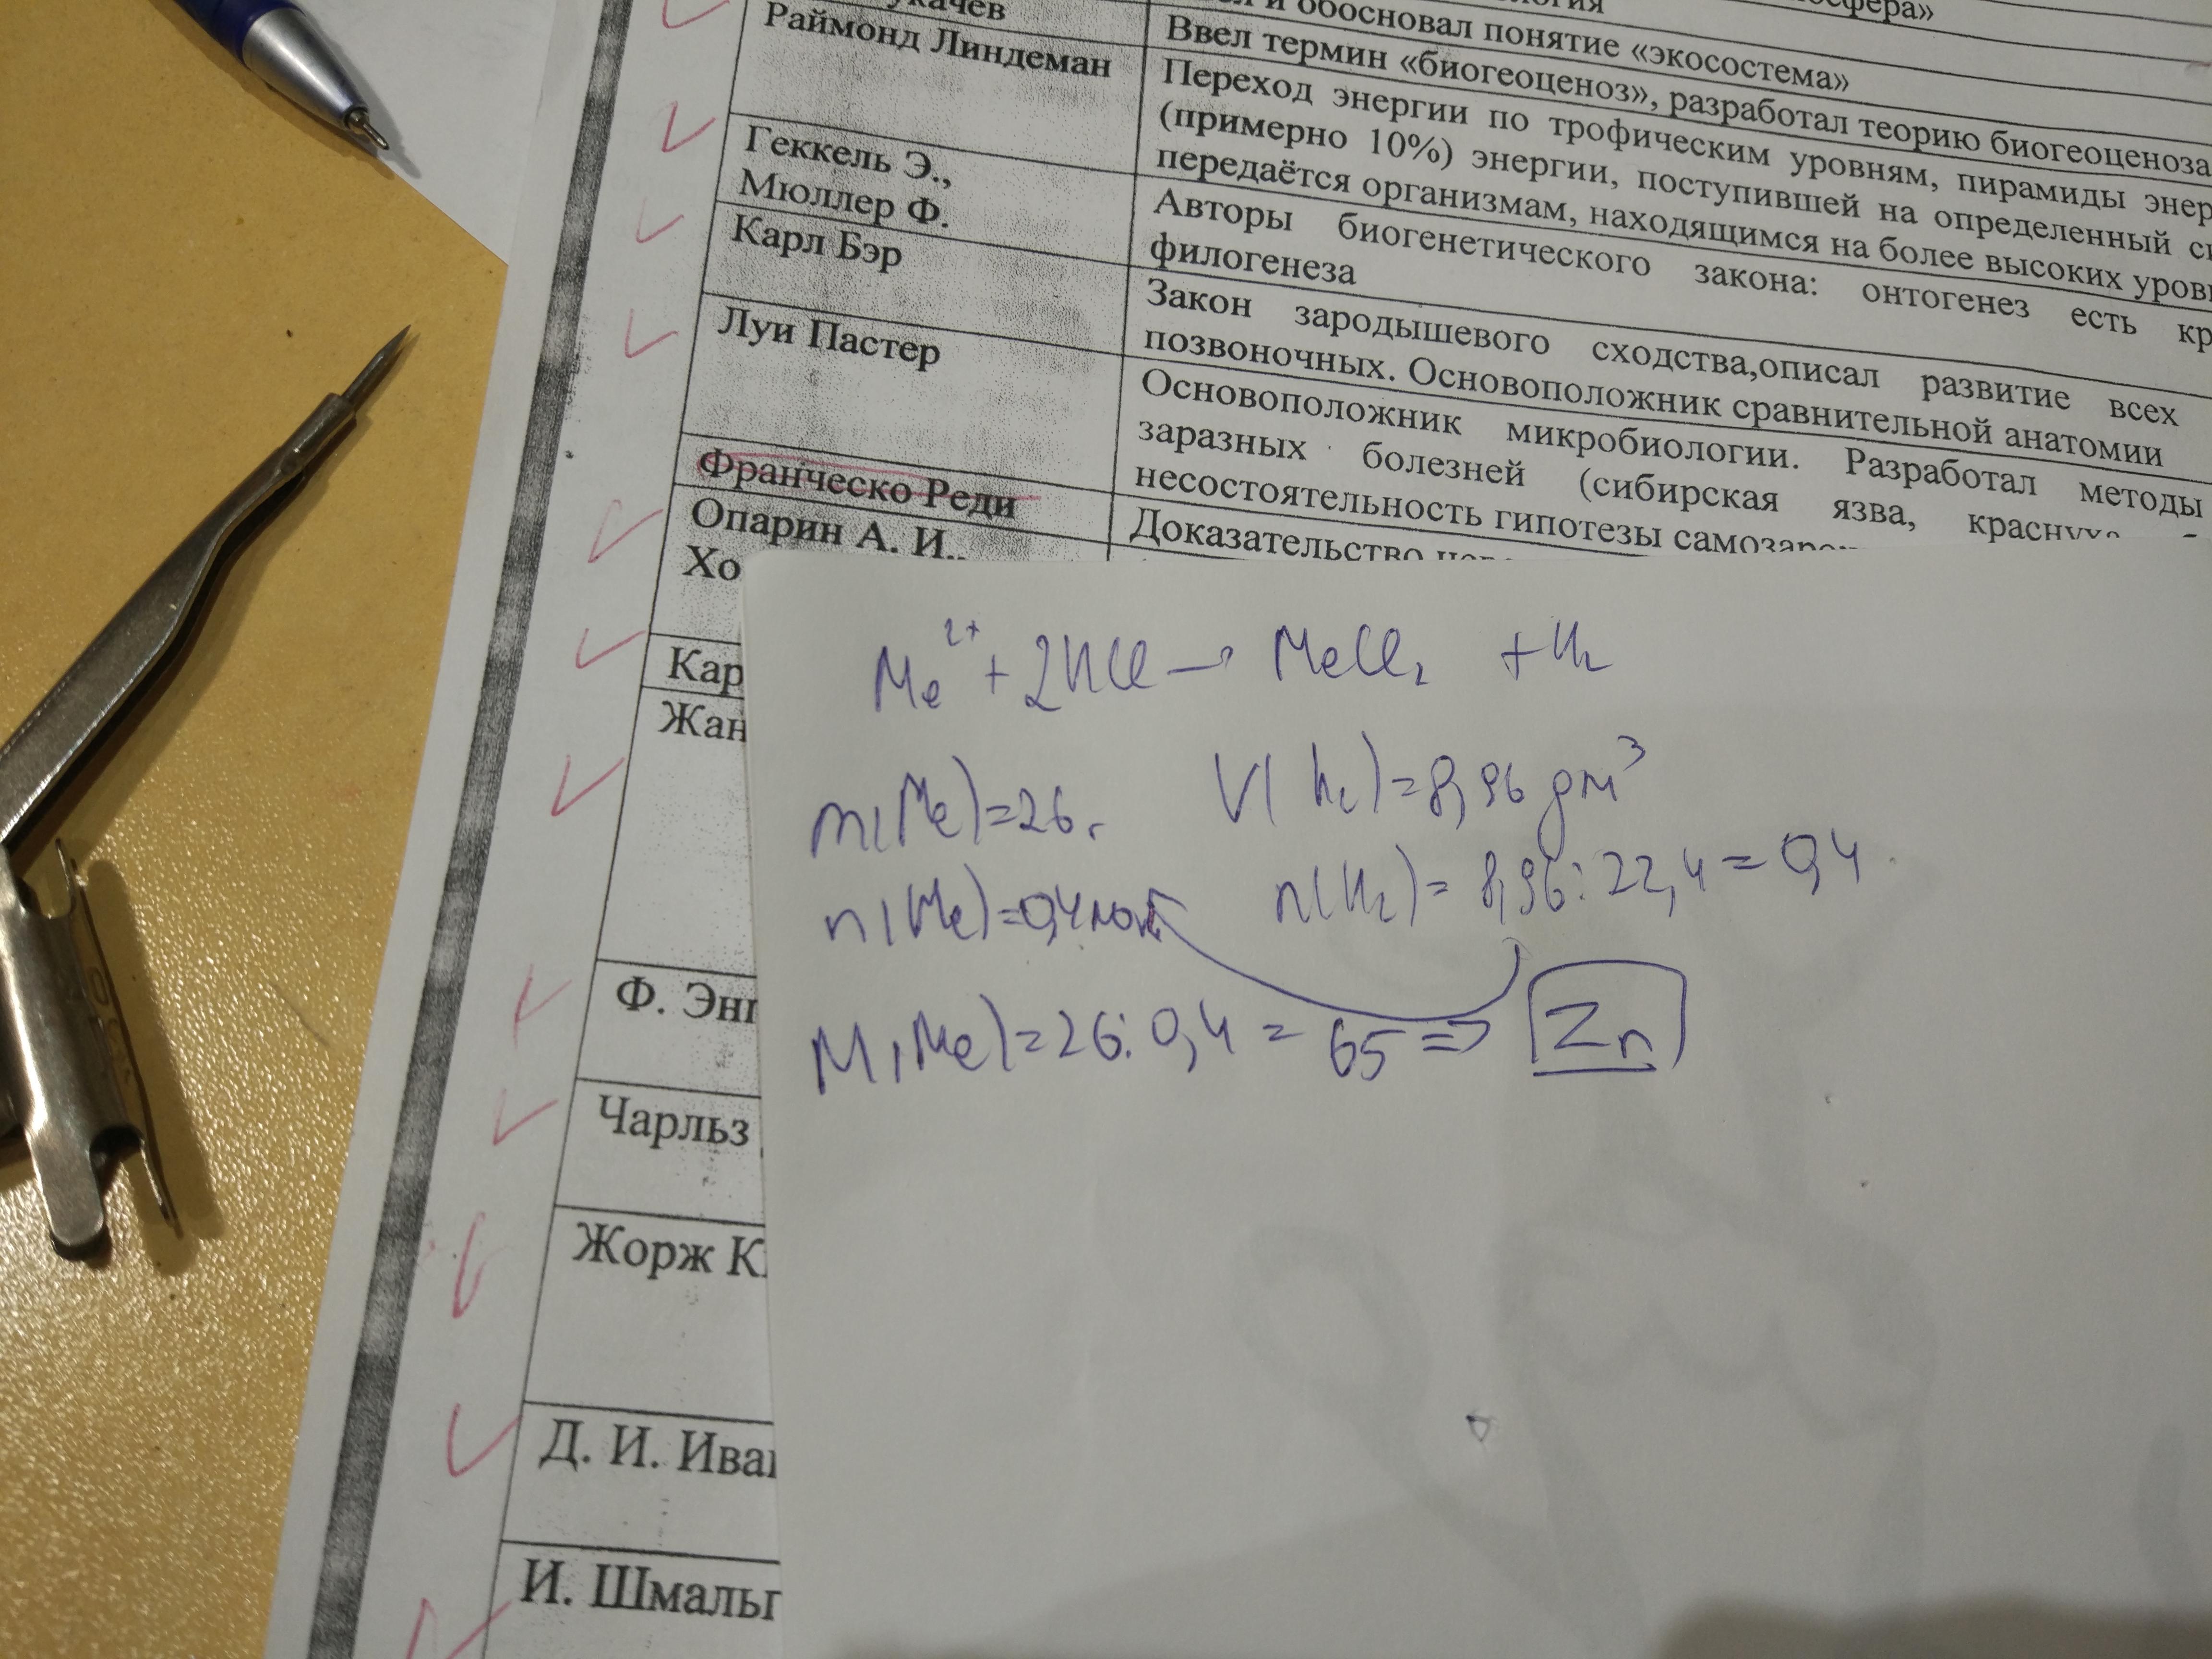 и обосновал понятие «экосостема»
Раймонд Линдеман
Ввел термин «биогеоценоз», разработал теорию биогеоценоза
Переход энергии по трофическим уровням, пирамиды энер
(примерно 10%) энергии, поступившей на определенный
передаётся организмам, находящимся на более высоких уров
Геккель Э.,
Мюллер Ф.
Авторы биогенетического закона: онтогенез есть кр
филогенеза
Карл Бэр
Закон зародышевого сходства,описал развитие всех
позвоночных. Основоположник сравнительной анатомии
Луи Пастер
Основоположник микробиологии. Разработал методы
заразных болезней (сибирская язва, краснуха
несостоятельность гипотезы самозаро
Франческо Реди
Доказательство
Опарин А. И.,
Хо
Кар
Жан
Ф. Энг
Чарльз
Жорж К
Д. И. Ива
И. Шмальг
Me²⁺ + 2HCl → MeCl₂ + H₂
m(Me)=26г V(H₂)=8,96 дм³
n(Me)=0,4моль n(H₂)= 8,96:22,4=0,4
M(Me)=26:0,4 = 65 => Zn